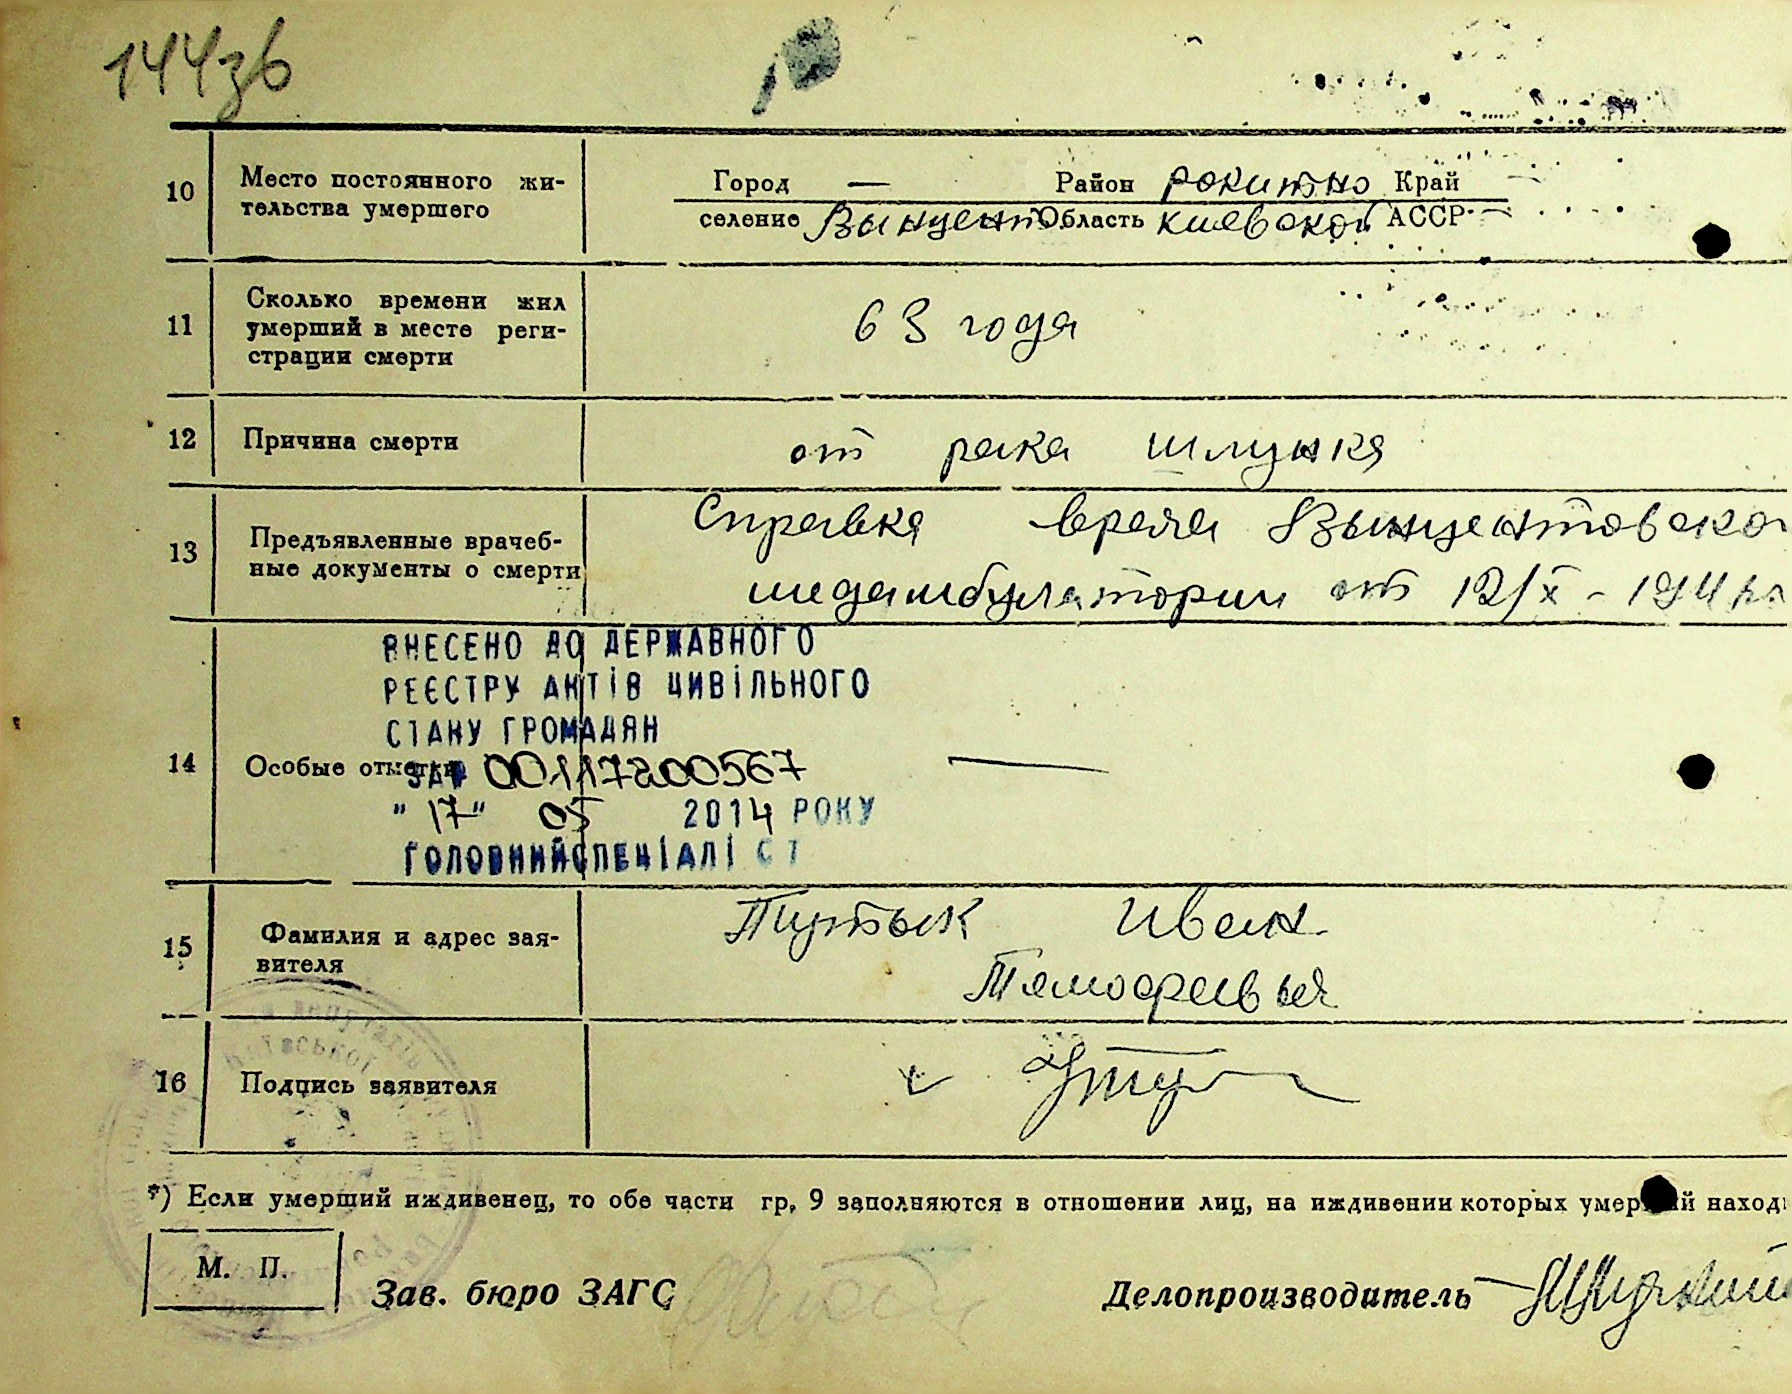 144зв
10 Место постоянного жи-
тельства умершего
Город — Район Рокитно Край —
селение Вынцент Область Киевской АССР —
11 Сколько времени жил
умерший в месте реги-
страции смерти
63 года
12 Причина смерти
от рака шлунка
13 Предъявленные врачеб-
ные документы о смерти
Справка врача Вынцентовской
медамбулатории от 12/X - 194
ВНЕСЕНО ДО ДЕРЖАВНОГО
РЕЄСТРУ АКТІВ ЦИВІЛЬНОГО
СТАНУ ГРОМАДЯН
14 Особые отметки ЗА № 00117800567 —
" 17 " 05 2014 РОКУ
ГОЛОВНИЙ СПЕЦІАЛІСТ
15 Фамилия и адрес зая-
вителя
Иван
16 Подпись заявителя
*) Если умерший иждивенец, то обе части гр, 9 заполняются в отношении лиц, на иждивении которых умерший наход
М. П.
Зав. бюро ЗАГС Делопроизводитель